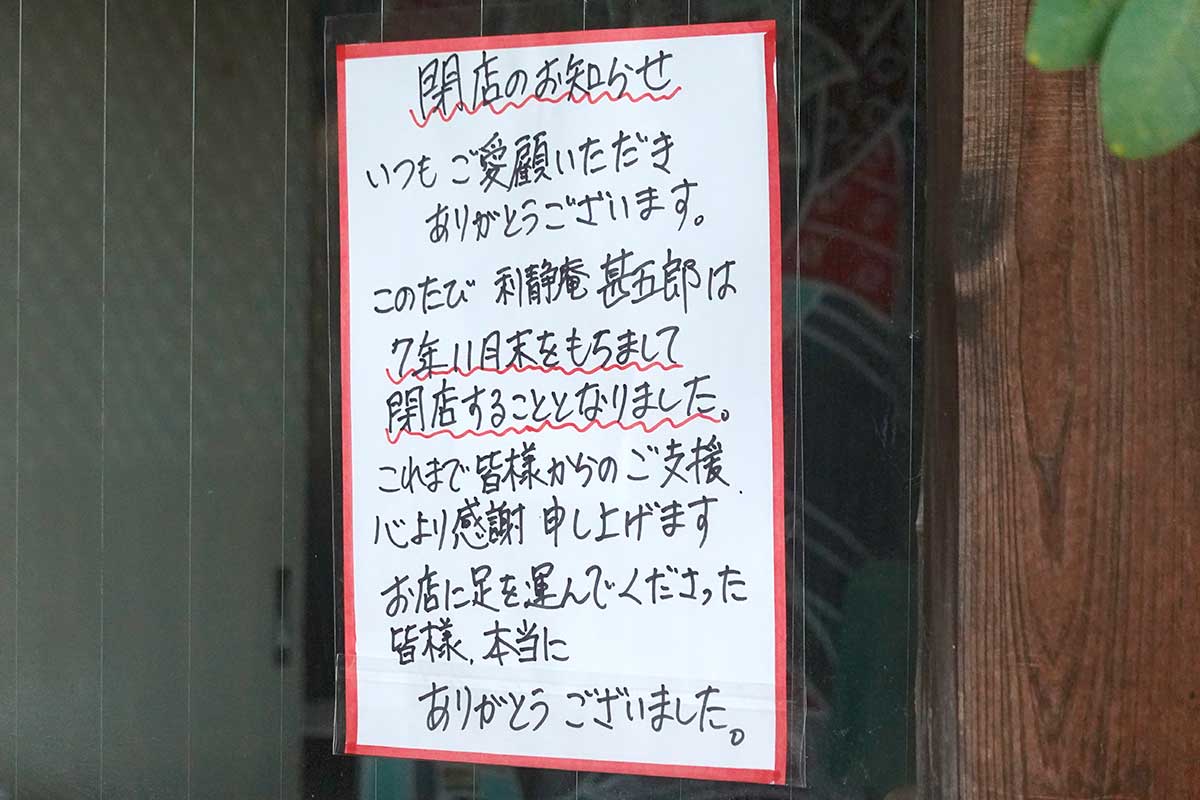 閉店のお知らせ
いつもご愛顧いただき
ありがとうございます。
このたび 利静庵 甚五郎は
7年11月末をもちまして
閉店することとなりました。
これまで皆様からのご支援、
心より感謝申し上げます
お店に足を運んでくださった
皆様、本当に
ありがとうございました。